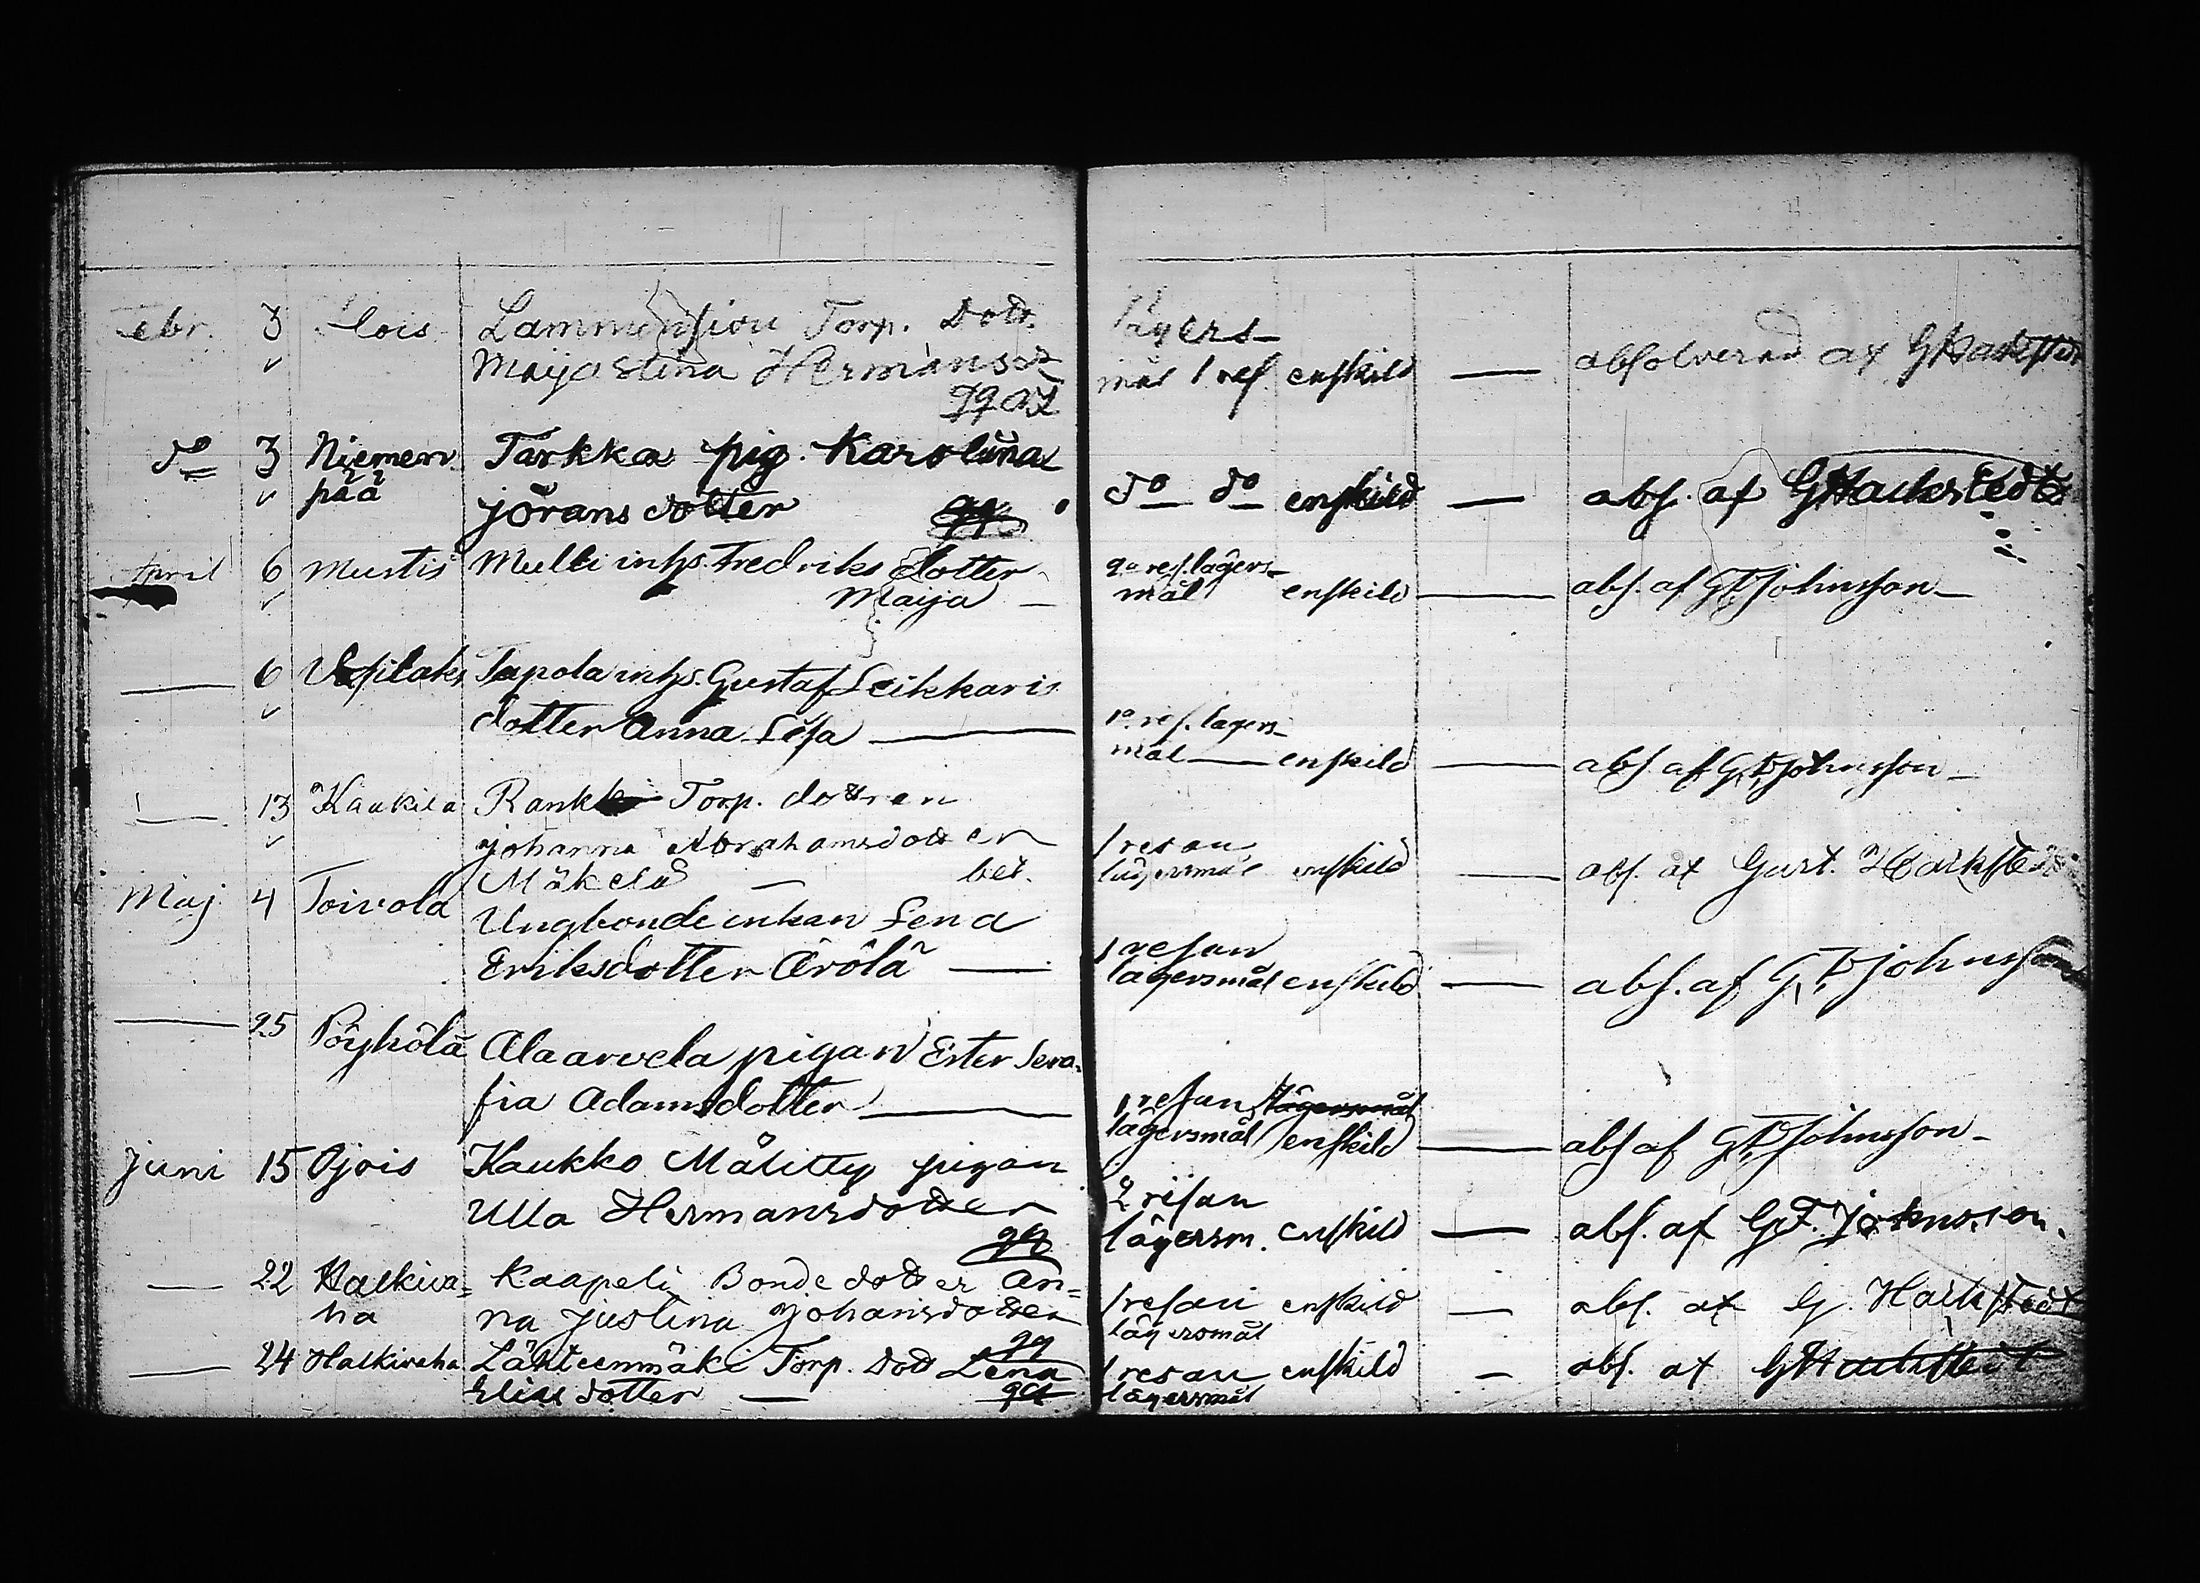 Febr. 3 Ojois Lammensiou Torp. Dott.
Maija Stina Hermansd
gq
lägers-
mål 1 res. enskild — absolverad af GHackstedt
do 3 Niemen Tarkka pig. Karolina
pää jöransdotter gq
do do enskild — abs. af GHackstedt
April 6 Mustis Mulli inhs. Fredriks dotter
Maija —
2a res. lägers-
mål enskild — abs. af G,F, Johnsson —
— 6 Tapola inhs. Gustaf Leikkaris
dotter Anna Lisa —
1a res. lägers-
mål — enskild — abs. af G,F, Johnsson —
— 13 Kaukila Rankki Torp. dottren
johanna Abrahamsdotter
1 resan
lägersmål enskild — abs. af Gust. Hackstedt
Mäkelä — bet.
Maj 4 Toivola Ungbonde enkan Lena
Eriksdotter Ärölä —
1 resan
lägersmål enskild — abs. af G,F, johnsson
— 25 Pöyhölä Alaarvela pigan Ester Sera-
fia Adamsdotter —
1 resan lägersmål
lägersmål enskild — abs af G,F, Johnsson —
Juni 15 Ojois Kaukko Målitty pigan
Ulla Hermansdotter
gq
2 resan
lägersm. enskild — abs. af G.F. Johnsson.
— 22 Halkiva= Kaapeli Bonde dotter An=
ha na justina johansdotter
gq
1 resan enskild — abs. af G. Hackstedt
lägersmål
— 24 Halkivaha Lähteenmäki Torp. Dott Lena
Elias dotter — gq
1 resan enskild — abs. af GHackstedt
lägersmål